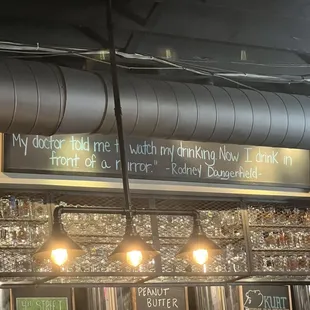 "My doctor told me to watch my drinking. Now I drink in
front of a mirror." -Rodney Dangerfield-
STREET
PEANUT
BUTTER
KURT